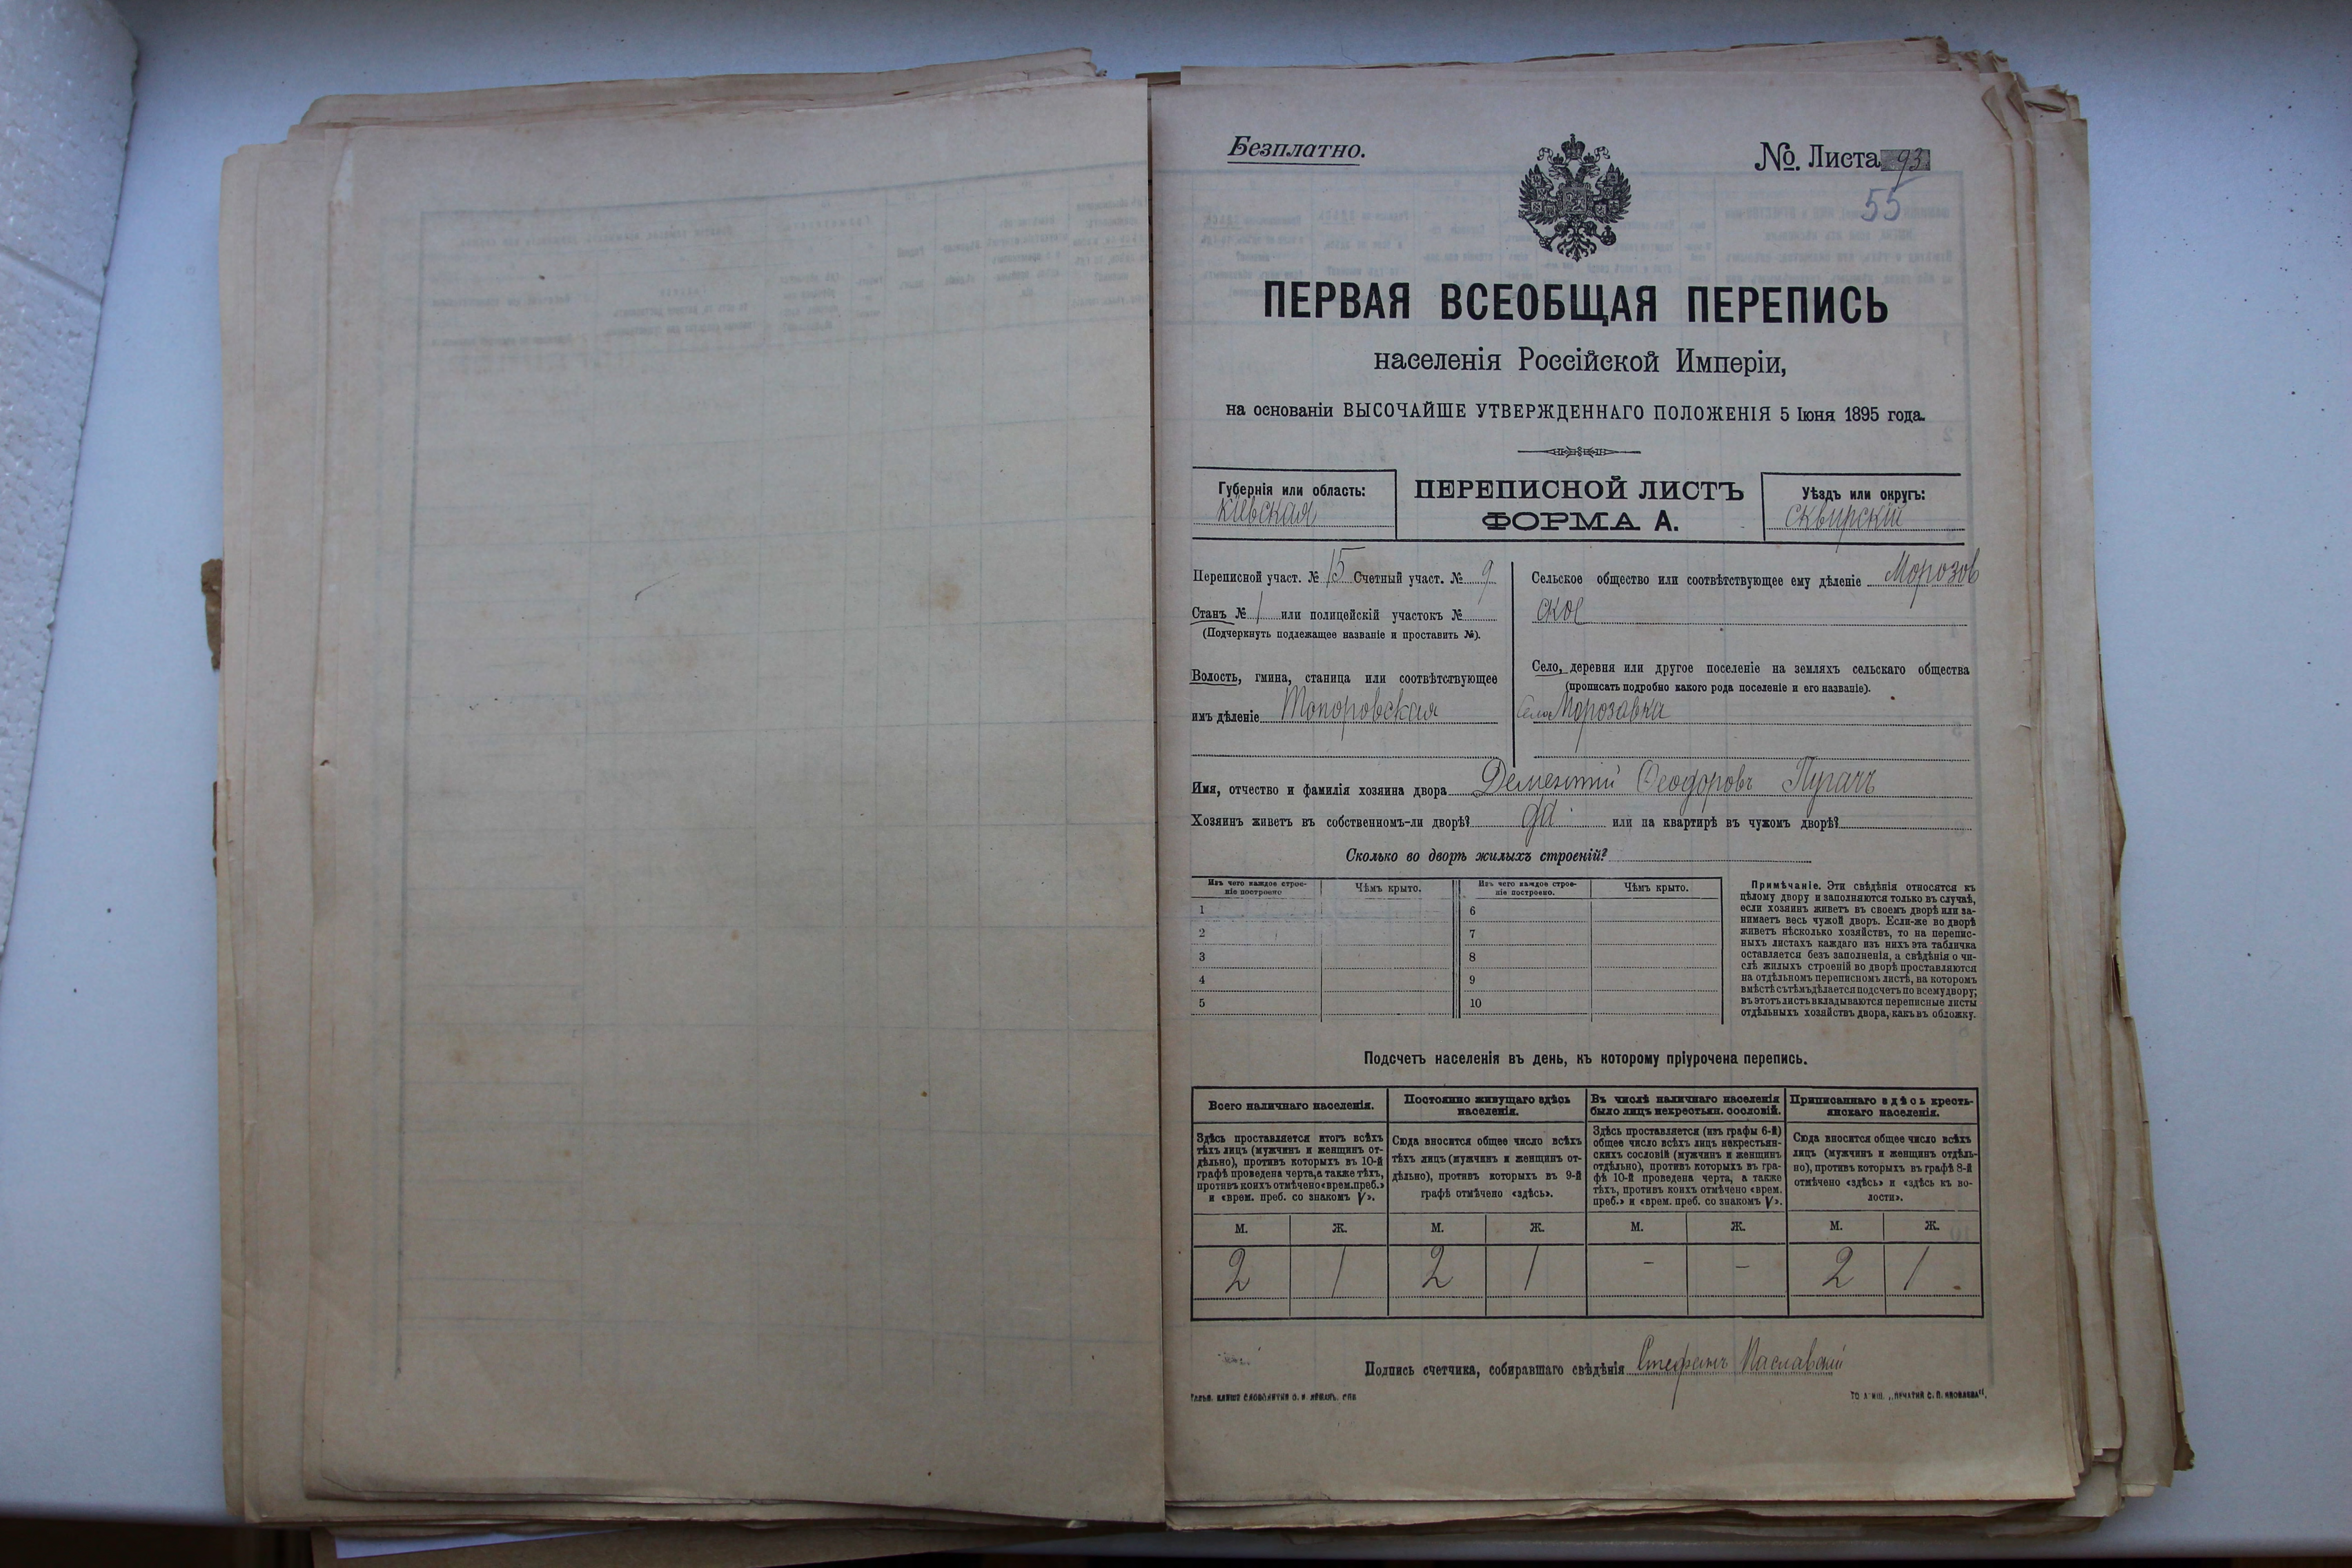 Безплатно.
№. Листа 93
55
ПЕРВАЯ ВСЕОБЩАЯ ПЕРЕПИСЬ
населенія Россійской Имперіи,
на основаніи ВЫСОЧАЙШЕ УТВЕРЖДЕННАГО ПОЛОЖЕНІЯ 5 Іюня 1895 года.
Губернія или область:
Кіевская
ПЕРЕПИСНОЙ ЛИСТЪ
ФОРМА А.
Уѣздъ или округъ:
Сквирскій
Переписной участ. № 15 Счетный участ. № 9
Станъ № 1 или полицейскій участокъ №
(Подчеркнуть подлежащее названіе и проставить №).
Волость, гмина, станица или соотвѣтствующее
имъ дѣленіе Топоровская
Сельское общество или соотвѣтствующее ему дѣленіе Морозов
ское
Село, деревня или другое поселеніе на земляхъ сельскаго общества
(прописать подробно какого рода поселеніе и его названіе).
Село Морозавка
Имя, отчество и фамилія хозяина двора Дементій Ѳеодоровъ Пугачъ
Хозяинъ живетъ въ собственномъ-ли дворѣ? да или на квартирѣ въ чужомъ дворѣ?
Сколько во дворѣ жилыхъ строеній?
Изъ чего каждое строе-
ніе построено
Чѣмъ крыто.
Изъ чего каждое строе-
ніе построено.
Чѣмъ крыто.
1
6
2
7
3
8
4
9
5
10
Примѣчаніе. Эти свѣдѣнія относятся къ
цѣлому двору и заполняются только въ случаѣ,
если хозяинъ живетъ въ своемъ дворѣ или за-
нимаетъ весь чужой дворъ. Если-же во дворѣ
живетъ нѣсколько хозяйствъ, то на перепис-
ныхъ листахъ каждаго изъ нихъ эта табличка
оставляется безъ заполненія, а свѣдѣнія о чи-
слѣ жилыхъ строеній во дворѣ проставляются
на отдѣльномъ переписномъ листѣ, на которомъ
вмѣстѣ съ тѣмъ дѣлается подсчетъ по всему двору;
въ этотъ листъ вкладываются переписные листы
отдѣльныхъ хозяйствъ двора, какъ въ обложку.
Подсчетъ населенія въ день, къ которому пріурочена перепись.
Всего наличнаго населенія.
Здѣсь проставляется итогъ всѣхъ
тѣхъ лицъ (мужчинъ и женщинъ от-
дѣльно), противъ которыхъ въ 10-й
графѣ проведена черта, а также тѣхъ,
противъ коихъ отмѣчено «врем. преб.»
и «врем. преб. со знакомъ V».
Постоянно живущаго здѣсь
населенія.
Сюда вносится общее число всѣхъ
тѣхъ лицъ (мужчинъ и женщинъ от-
дѣльно), противъ которыхъ въ 9-й
графѣ отмѣчено «здѣсь».
Въ числѣ наличнаго населенія
было лицъ некрестьян. сословій.
Здѣсь проставляется (изъ графы 6-й)
общее число всѣхъ лицъ некрестьян-
скихъ сословій (мужчинъ и женщинъ
отдѣльно), противъ которыхъ въ гра-
фѣ 10-й проведена черта, а также
тѣхъ, противъ коихъ отмѣчено «врем.
преб.» и «врем. преб. со знакомъ V».
Приписаннаго здѣсь кресть-
янскаго населенія.
Сюда вносится общее число всѣхъ
лицъ (мужчинъ и женщинъ отдѣль-
но), противъ которыхъ въ графѣ 8-й
отмѣчено «здѣсь» и «здѣсь къ во-
лости».
М. Ж. М. Ж. М. Ж. М. Ж.
2 1 2 1 - - 2 1
Подпись счетчика, собиравшаго свѣдѣнія Стефанъ Паславскій